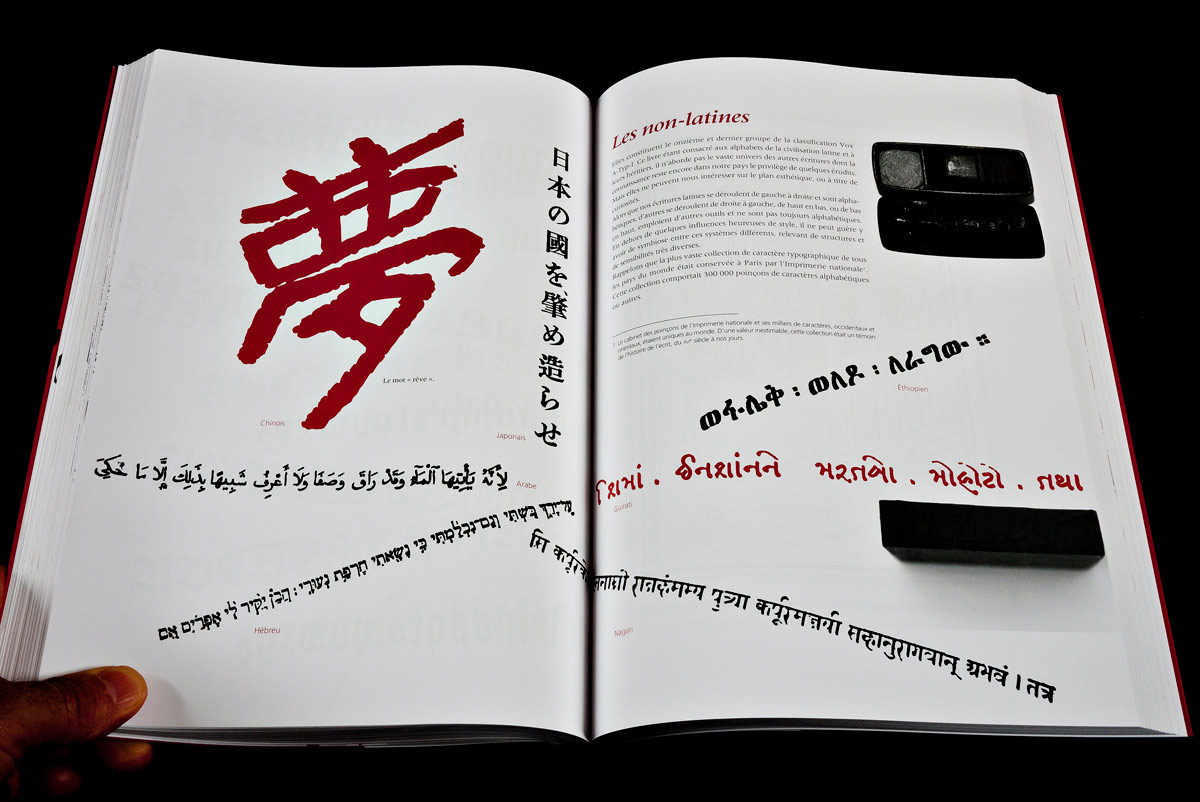 夢
日本の國を、肇め造らせ
Le mot « rêve ».
Chinois
Japonais
لِأَنَّهُ يَأْتِيهَا ٱلْمَآءُ وَقَدْ رَاقَ وَصَفَا وَلَا أَعْرِفُ شَبِيهًا بِذَلِكَ إِلَّا مَا حُكِيَ
Arabe
בשתי וגם־נכלמתי כי נשאתי חרפת נעורי: הבן יקיר לי אפרים אם
Hébreu
Les non-latines
Elles constituent le onzième et dernier groupe de la classification Vox
A-Typ-I. Ce livre étant consacré aux alphabets de la civilisation latine et à
leurs héritiers, il n'aborde pas le vaste univers des autres écritures dont la
connaissance reste encore dans notre pays le privilège de quelques érudits.
Mais elles ne peuvent nous intéresser sur le plan esthétique, ou à titre de
curiosités.
Alors que nos écritures latines se déroulent de gauche à droite et sont alpha-
bétiques, d'autres se déroulent de droite à gauche, de haut en bas, ou de bas
en haut, emploient d'autres outils et ne sont pas toujours alphabétiques.
En dehors de quelques influences heureuses de style, il ne peut guère y
avoir de symbiose entre ces systèmes différents, relevant de structures et
de sensibilités très diverses.
Rappelons que la plus vaste collection de caractère typographique de tous
les pays du monde était conservée à Paris par l'Imprimerie nationale¹.
Cette collection comportait 300 000 poinçons de caractères alphabétiques
ou autres.
1. Le Cabinet des poinçons de l'Imprimerie nationale et ses milliers de caractères, occidentaux et
orientaux, étaient uniques au monde. D'une valeur inestimable, cette collection était un témoin
de l'histoire de l'écrit, du XVIᵉ siècle à nos jours.
ወፋሌቅ ፡ ወለዶ ፡ ለራግው ።
Éthiopien
ઈનશાંનને મરતબો . મોહોટો . તથા
Gujrati
पुत्र्या कर्पूरमञ्जर्या सहानुरागवान् प्रभवं । तत्र
Nagari